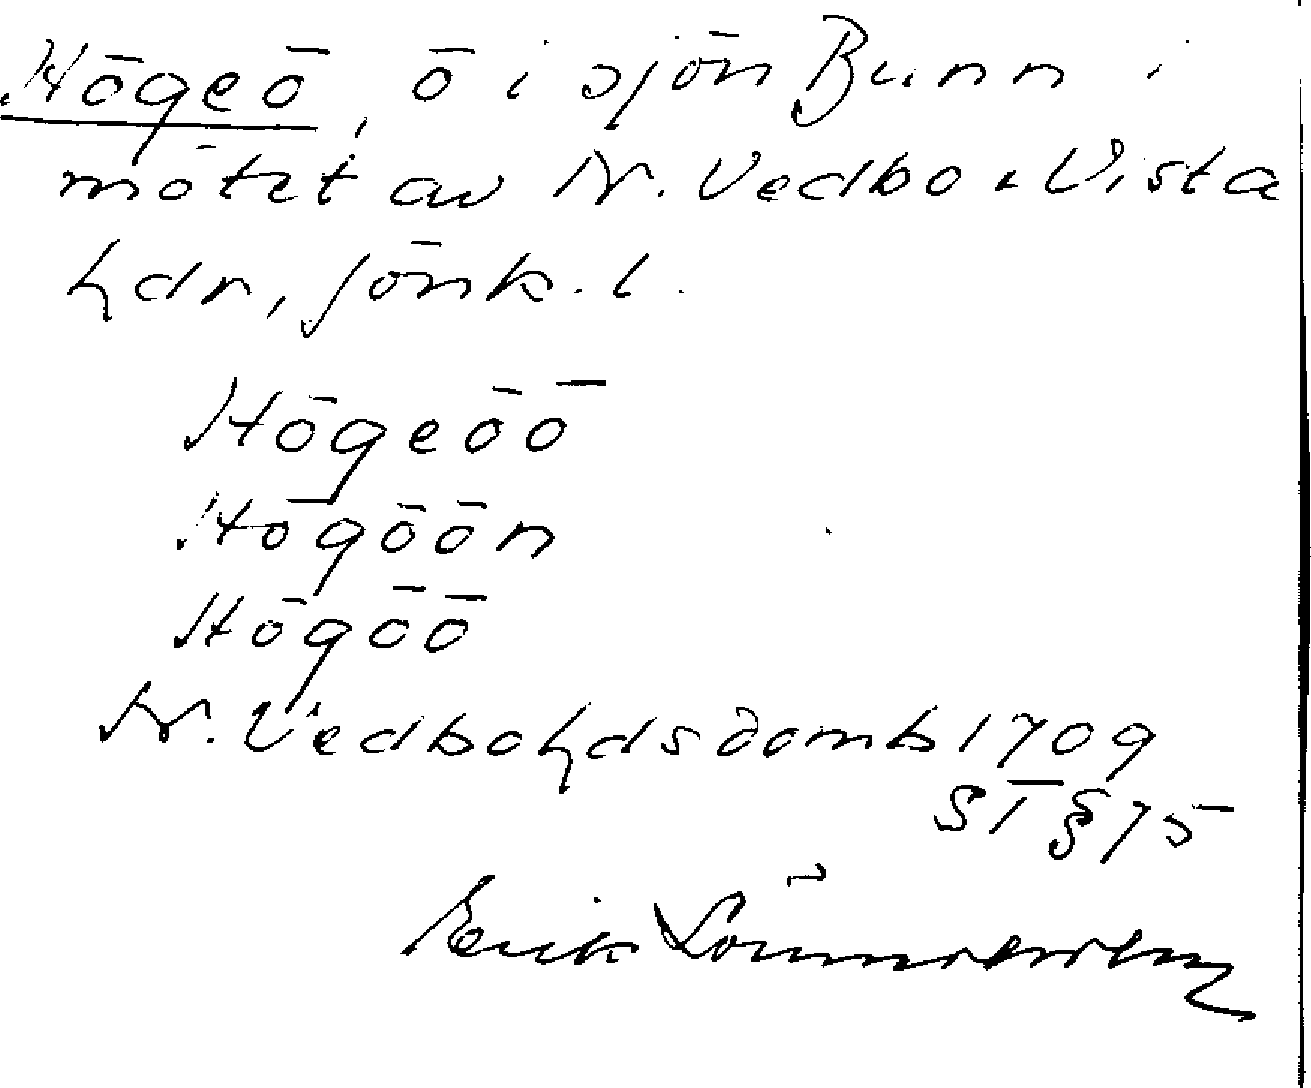 Högeö, ö i sjön Bunn i
mötet av N. Vedbo o. Vista
hdr, Jönk. l.
Högeöö
Högöön
Högöö
N. Vedbohdsdomb 1709
ST § 75
Erik